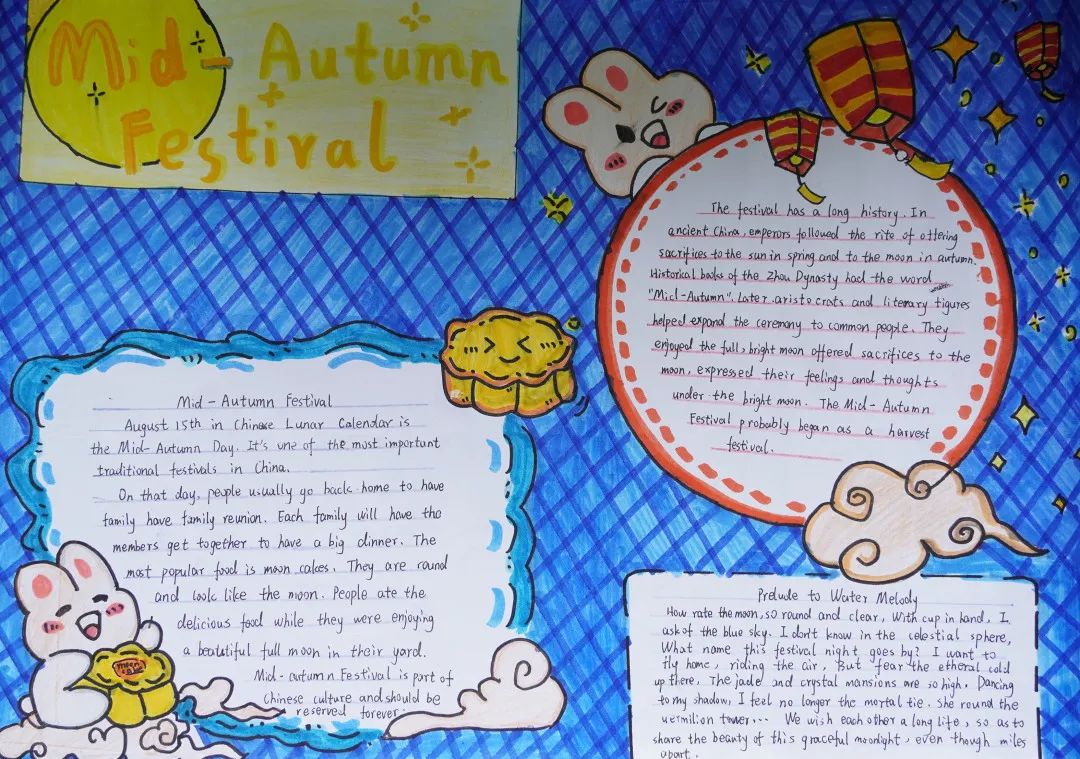 Mid-Autumn
Festival
The festival has a long history. In
ancient China, emperors followed the rite of offering
sacrifices to the sun in spring and to the moon in autumn.
Historical books of the Zhou Dynasty had the word
"Mid-Autumn". Later aristocrats and literary figures
helped expand the ceremony to common people. They
enjoyed the full, bright moon offered sacrifices to the
moon, expressed their feelings and thoughts
under the bright moon. The Mid-Autumn
Festival probably began as a harvest
festival.
Mid-Autumn Festival
August 15th in Chinese Lunar Calendar is
the Mid-Autumn Day. It's one of the most important
traditional festivals in China.
On that day, people usually go back home to have
family have family reunion. Each family will have the
members get together to have a big dinner. The
most popular food is moon cakes. They are round
and look like the moon. People ate the
delicious food while they were enjoying
a beautiful full moon in their yard.
Mid-autumn Festival is part of
Chinese culture and should be
reserved forever.
moon
cake
Prelude to Water Melody
How rate the moon, so round and clear, With cup in hand, I
ask of the blue sky. I don't know in the celestial sphere,
What name this festival night goes by? I want to
fly home, riding the air, But fear the etheral cold
up there, The jade and crystal mansions are so high. Dancing
to my shadow, I feel no longer the mortal tie. She round the
vermilion tower... We wish each other a long life, so as to
share the beauty of this graceful moonlight, even though miles
apart.